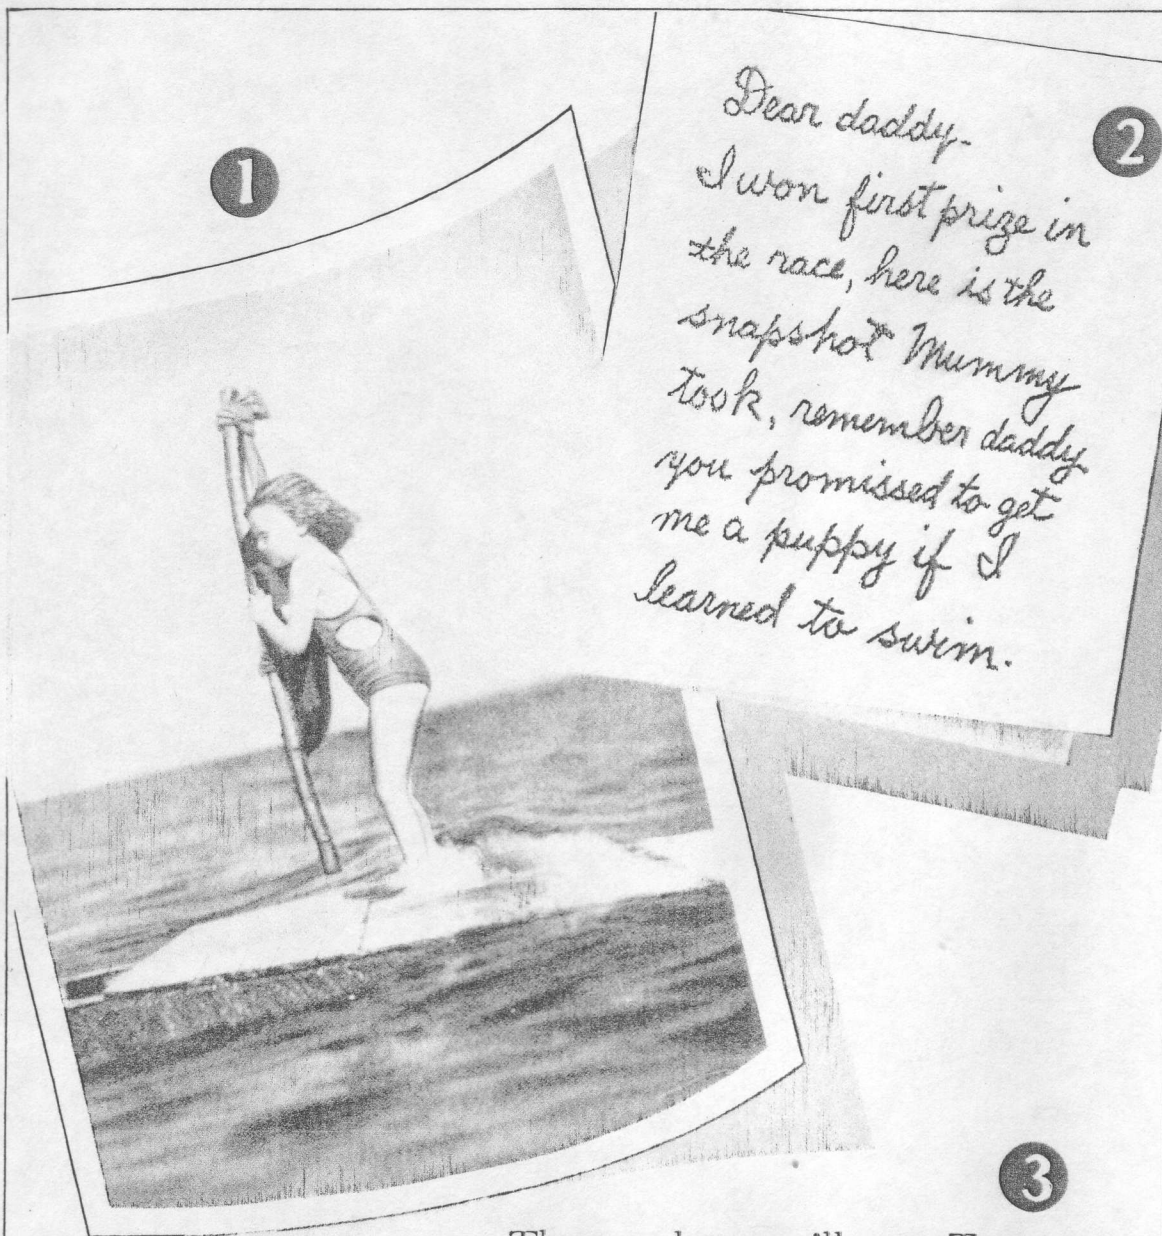 1
2
Dear daddy-
I won first prize in
the race, here is the
snapshot Mummy
took, remember daddy
you promissed to get
me a puppy if I
learned to swim.
3